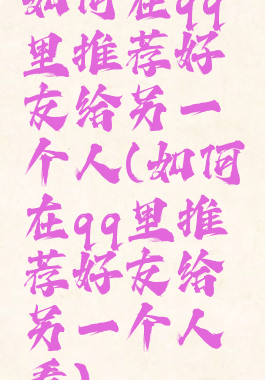 如何在qq
里推荐好
友给另一
个人(如何
在qq里推
荐好友给
另一个人
看)